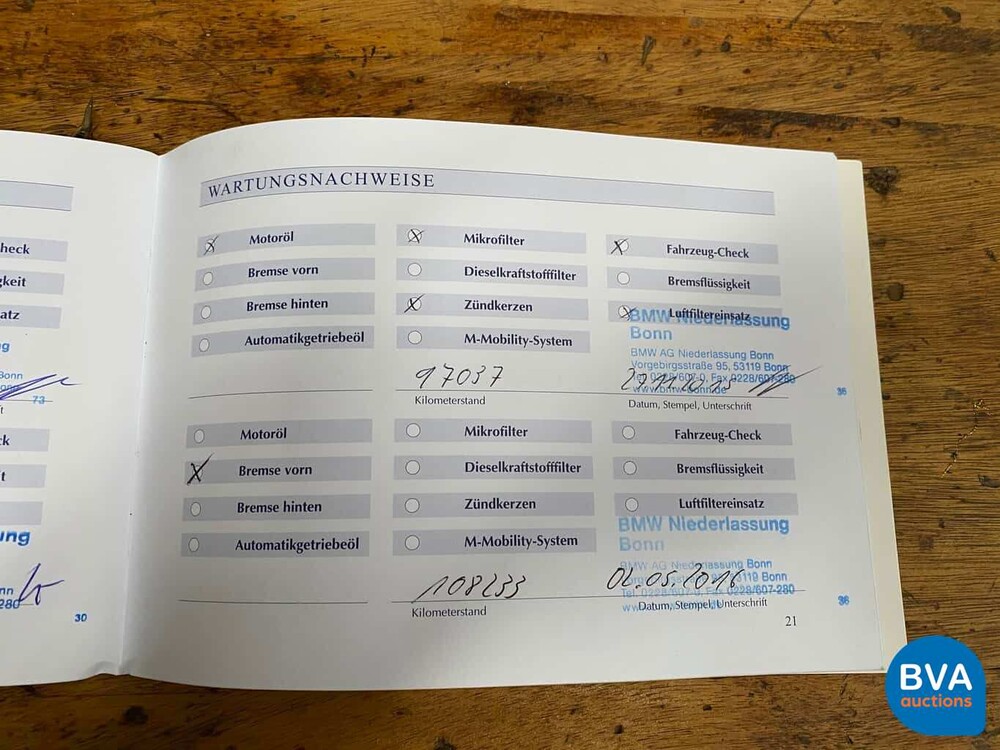 WARTUNGSNACHWEISE
Motoröl Mikrofilter Fahrzeug-Check
Bremse vorn Dieselkraftstofffilter Bremsflüssigkeit
Bremse hinten Zündkerzen Luftfiltereinsatz
Automatikgetriebeöl M-Mobility-System
BMW Niederlassung
Bonn
BMW AG Niederlassung Bonn
Vorgebirgsstraße 95, 53119 Bonn
Tel. 0228/607-0, Fax 0228/607-280
www.bmw-bonn.de
97037
Kilometerstand Datum, Stempel, Unterschrift
36
Motoröl Mikrofilter Fahrzeug-Check
Bremse vorn Dieselkraftstofffilter Bremsflüssigkeit
Bremse hinten Zündkerzen Luftfiltereinsatz
Automatikgetriebeöl M-Mobility-System
BMW Niederlassung
Bonn
BMW AG Niederlassung Bonn
53119 Bonn
Tel. 0228/607-0, Fax 0228/607-280
108233 02.05.2016
Kilometerstand Datum, Stempel, Unterschrift
36
21
heck
gkeit
atz
ng
Bonn
73
ck
t
ung
nn
280
30
BVA
auctions